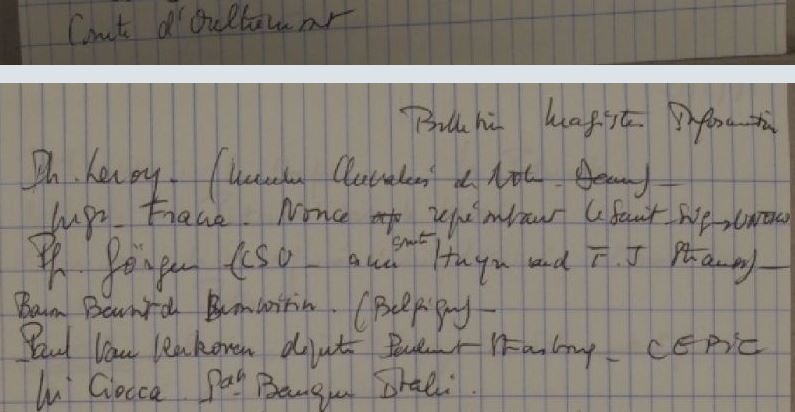 Comte d'Oultremont
Bulletin Magister Information
Ph. Leroy. ( Chevalier de Notre Dame) -
Mgr. Frana. Nonce représentant le Saint Siège UNESCO
Ph. Görgen (CSU - ami Huyn and F.J Strauss) -
Baron Benoit de Bonvoisin. (Belgique) -
Paul Van Kerkoven député Parlement Strasbourg - CEPIC
Mr Ciocca. Banque Italie.